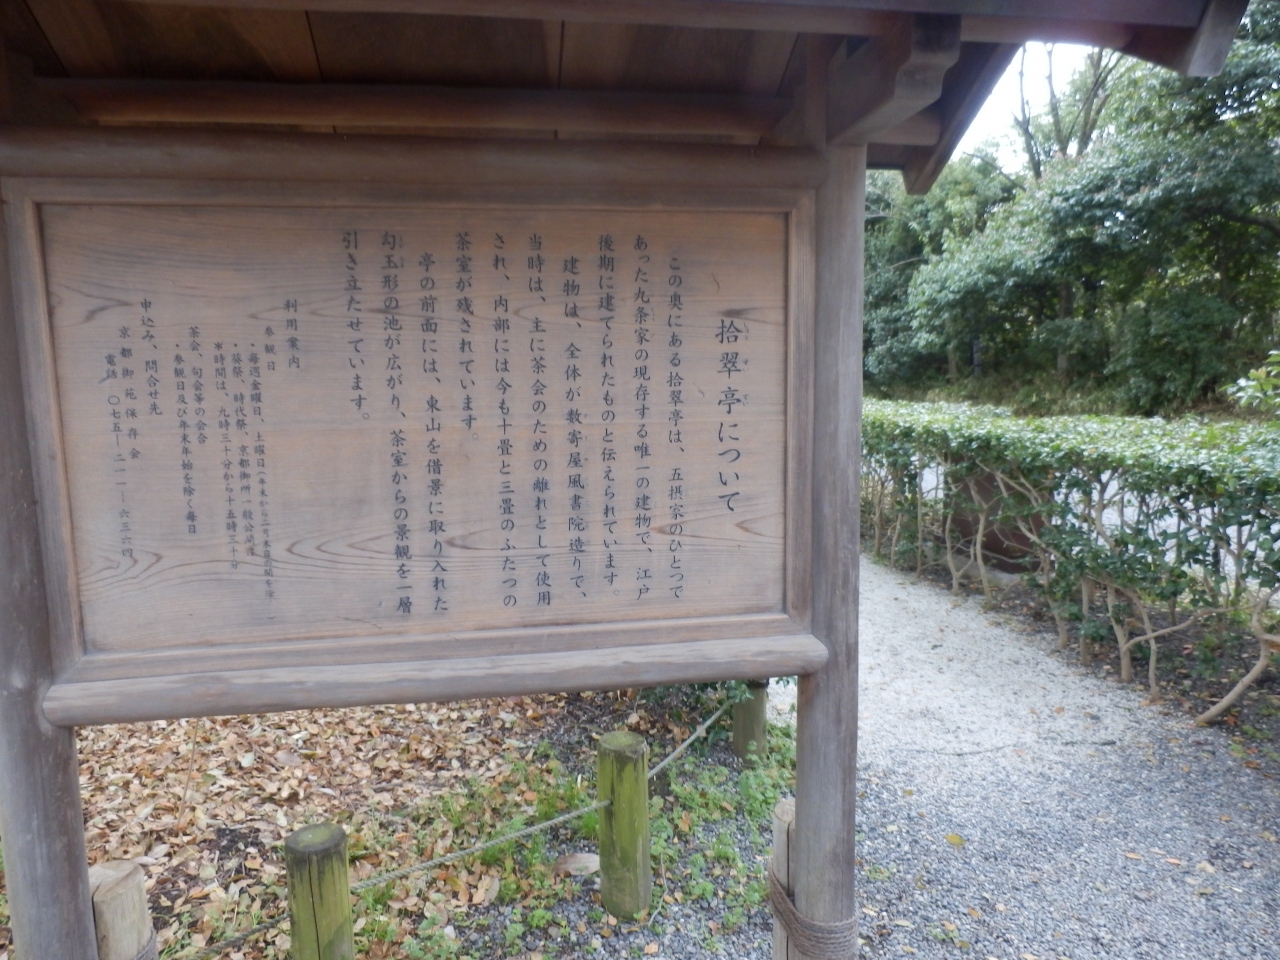 拾翠亭について
この奥にある拾翠亭は、五摂家のひとつで
あった九条家の現存する唯一の建物で、江戸
後期に建てられたものと伝えられています。
建物は、全体が数寄屋風書院造りで、
当時は、主に茶会のための離れとして使用
され、内部には今も十畳と三畳のふたつの
茶室が残されています。
亭の前面には、東山を借景に取り入れた
勾玉形の池が広がり、茶室からの景観を一層
引き立たせています。
利用案内
参観日
毎週金曜日、土曜日
・葵祭、時代祭、京都御所一般公開
時間は、九時三十分から十五時三十分
茶会、句会等の会合
・参観日及び年末年始を除く毎日
申込み、問合せ先
京都御苑保存会
電話 〇七五―二一一―六三六四